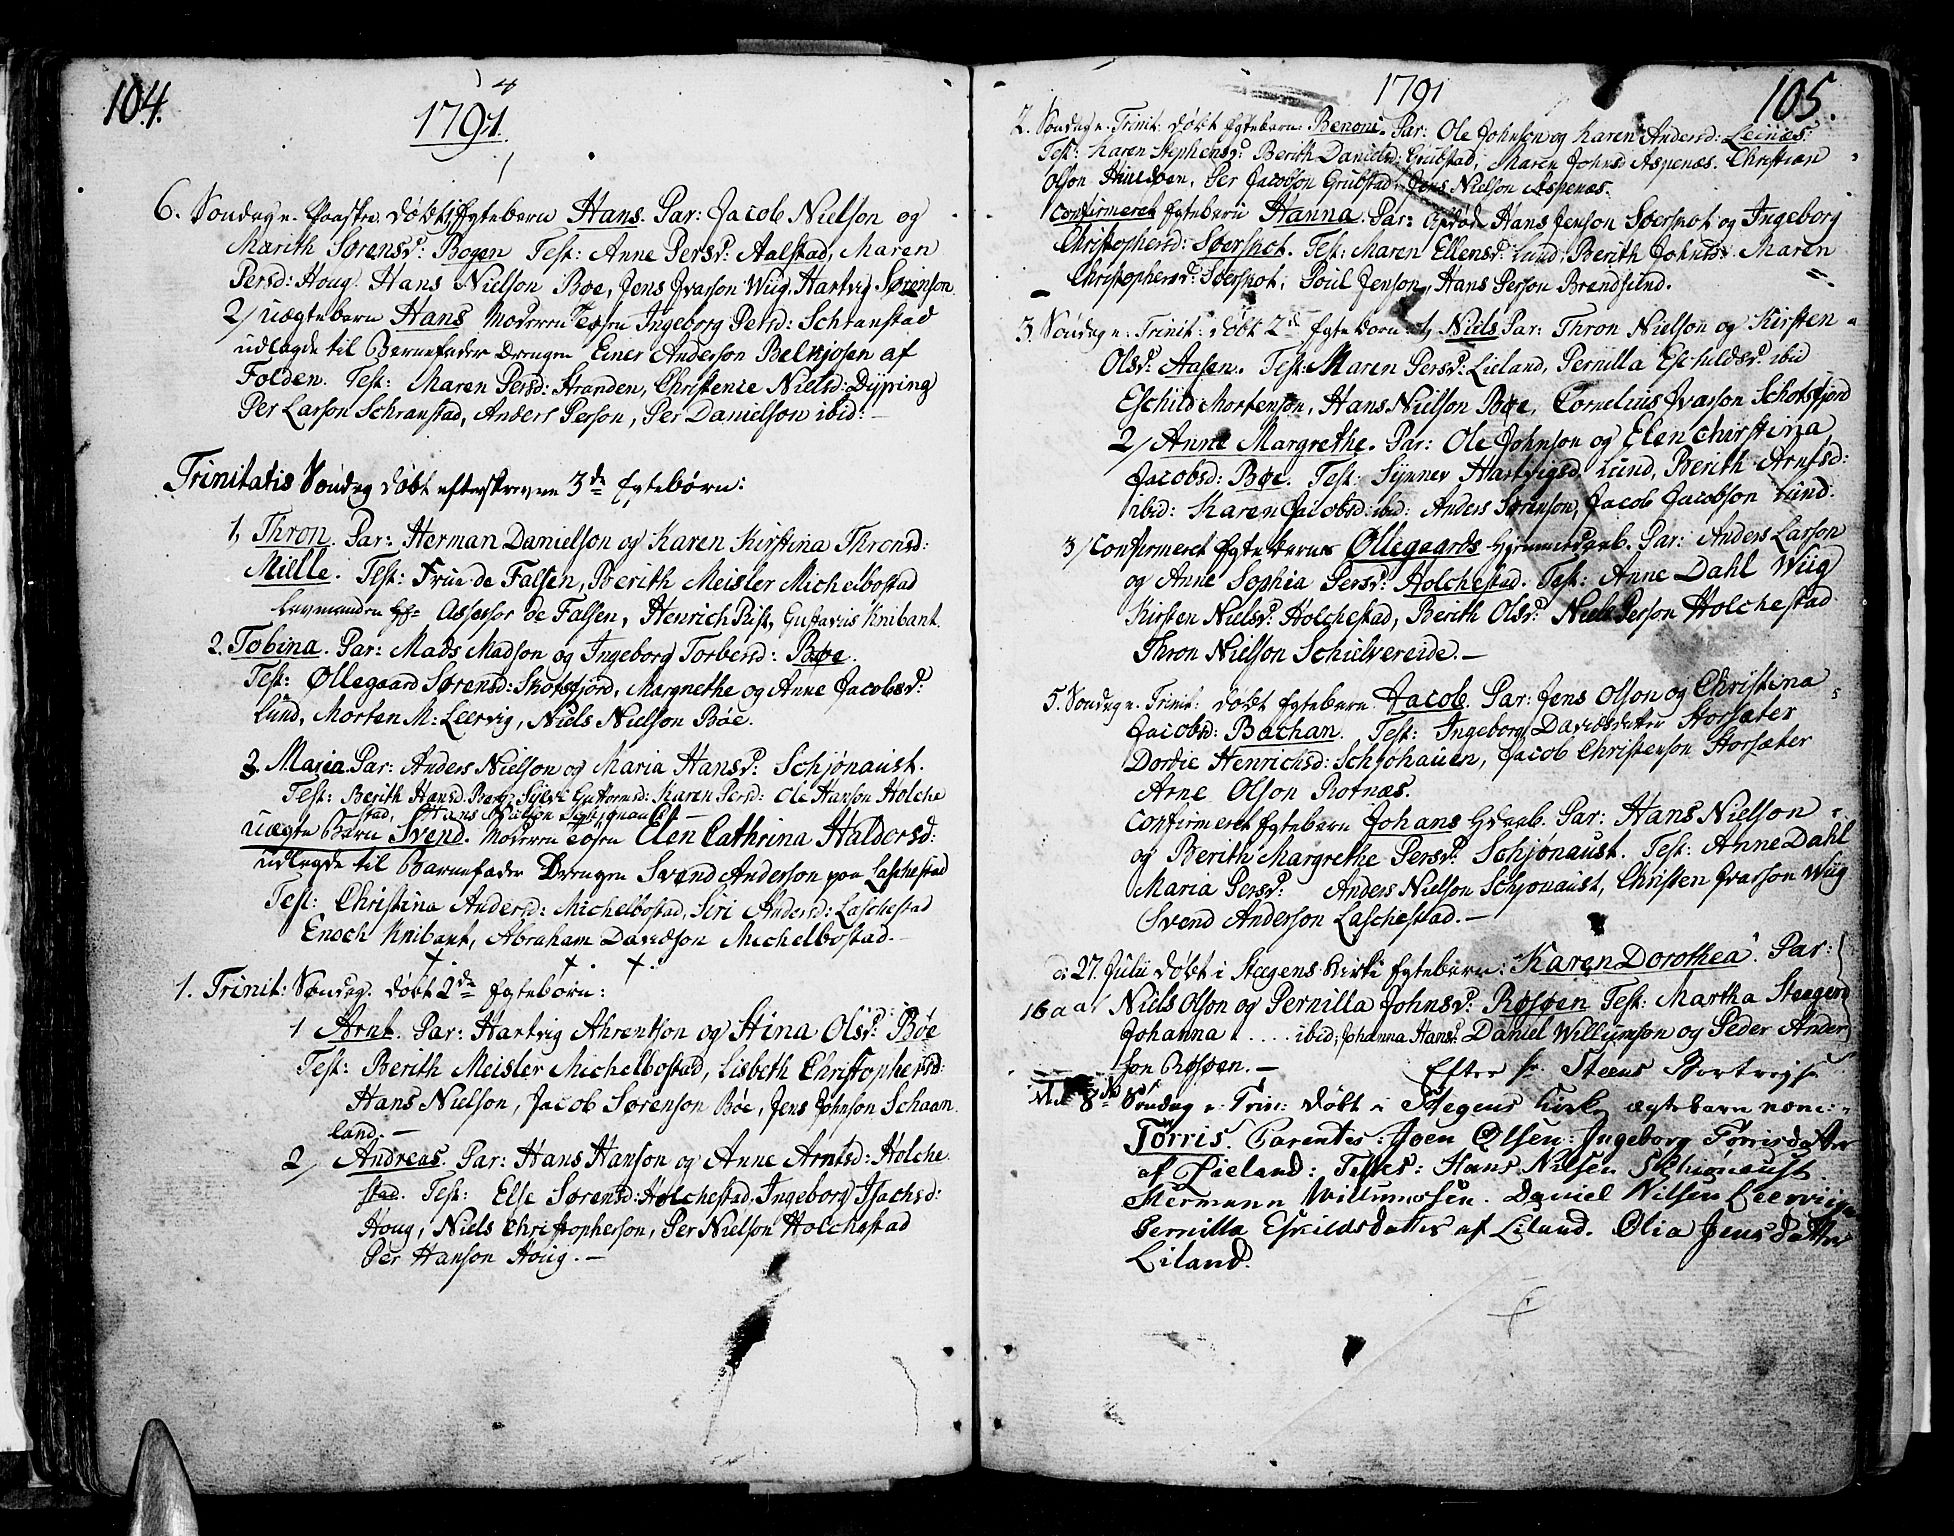 104.
1791.
6. Søndag e. Paaske døbt 1 Ægtebarn Hans. Par: Jacob Nielson og
Marith Sørensd: Bogen Test: Anne Persd: Aalstad, Maren
Persd: Houg. Hans Nielson Bøe, Jens Ivarson Wiig, Hartvig Sørenson.
2/ Uægtebarn Hans Moderen Ingeborg Persd: Schranstad
udlagde til Barnefader Drengen Einer Anderson Belkjosen af
Folden. Test: Maren Persd: Stranden, Christence Nielsd: Dyping
Per Larson Schranstad, Anders Person, Per Danielson ibid: —
Trinitatis Søndag døbt efterskrevne 3de Ægtebørn:
1, Thron. Par: Herman Danielson og Karen Kirstina Thronsd:
Mielle. Test: Frue de Falsen, Berith Meisler Michelbostad
Laymanden Assessor de Falsen, Henrich Rist, Gustavus Knibant.
2. Tobina. Par: Mads Madson og Ingeborg Torbersd: Bøe.
Test: Øllegaard Sørensd: Skotsfjord, Margrethe og Anne Jacobsd:
Lund, Morten M: Leervig, Niels Nielson Bøe.
3. Maria. Par: Anders Nielson og Maria Hansd: Schjønaust.
Test: Berith Hansd. Berg, Guttormsd: Karen Persd: Ole Hanson Holche
stad, Hans
Uægte Barn Svend. Moderen Elen Cathrina Haldorsd:
udlagde til Barnefader Drengen Svend Anderson paa Laschestad
Test: Christina Andersd: Michelbostad, Siri Andersd: Laschestad
Enoch Knibant, Abraham Davidson Michelbostad.
1. Trinit: Søndag. døbt 2de Ægtebørn:
1 Arnt. Par: Hartvig Ahrentson og Stina Olsd: Bøe
Test: Berith Meisler Michelbostad, Lisbeth Christophersd:
Hans Nielson, Jacob Sørenson Bøe, Jens Johnson Schaan
land. —
2/ Andreas. Par: Hans Hanson og Anne Arntsd: Holche
stad. Test: Else Sørensd: Holchestad, Ingeborg Isachsd:
Houg, Niels Christopherson, Per Nielson Holchestad
Per Hanson Houg. —
1791
105.
2. Søndag e. Trinit: døbt Ægtebarn: Benoni. Par: Ole Johnson og Karen Andersd: Leines:
Test: Karen Stephensd: Berith Danielsd: Grubstad, Maren Johnsd Aspenæs. Christian
Olson, Per Jacobson Grubstad, Jens Nielson Aspenæs.
Confirmeret Ægtebarn Hanna. Par: Hans Jenson Soerskot og Ingeborg
Christophersd: Soerskot. Test: Maren Ellensd: Lund, Berith Johnsd: Maren
Christophersd: Soerskot, Poul Jenson, Hans Person Brendsund.
3. Søndag e. Trinit: døbt 2de Ægtebørn 1, Niels Par: Thron Nielson og Kirsten
Olsd: Aasen. Test: Maren Persd: Lieland, Pernilla Eschildsd: ibid
Eschild Mortenson, Hans Nielson Bøe, Cornelius Ivarson Schotsfjord
2/ Anne Margrethe. Par: Ole Johnson og Elen Christina
Jacobsd: Bøe. Test: Synnev Hartvigsd Lund, Berith Arntsd:
ibid: Karen Jacobsd: ibid: Anders Sørenson, Jacob Jacobson Lund.
3/ Confirmeret Ægtebarnet Øllegaards Hjemmedaab. Par: Anders Larson
og Anne Sophia Persd: Holchestad. Test: Anne Dahl Wiig
Kirsten Nielsd: Holchestad, Berith Olsd: Niels Person Holchestad
Thron Nielson Schielvereide. —
5. Søndag e. Trinit: døbt Ægtebarn Jacob. Par: Jens Olson og Christina
Jacobsd: Bachan. Test: Ingeborg Davidsdatter Storsæter
Dordie Henrichsd: Schjshauen, Jacob Christenson Storsæter
Arne Olson Rotnæs.
Confirmeret Ægtebarn Johans Hdaab. Par: Hans Nielson
og Berith Margrethe Persd: Schjønaust. Test: Anne Dahl
Maria Persd: Anders Nielson Schjønaust, Christen Ivarson Wiig
Svend Anderson Laschestad. —
d: 27. Julii døbt i Stegens Kirke Ægtebarn: Karen Dorothea. Par:
Niels Olson og Pernilla Johnsd: Røsøen Test: Martha Steegen
Johanna . . . . . ibid; Johanna Hansd: Daniel Willumson og Peder Ander
son Røsøen. —
Efter Hr. Steens Bortreyse
8de Søndag e: Trin: døbt i Stegens Kirke ægtebarn navn:
Tørris. Parentes: Joen Olsen: Ingeborg Tørrisdatter
af Lieland: Testes: Hans Nilsen Skhiønaust
Hermann Willumssen. Daniel Nilsen Leervigen
Pernilla Eskildsdatter af Liland. Olia Jensdatter
Liland.